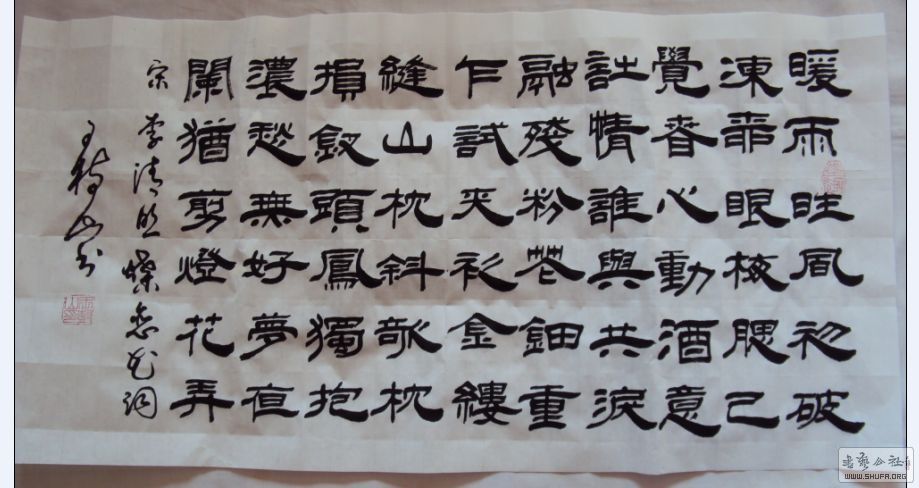 暖雨晴風初破
凍柳眼梅腮已
覺春心動酒意
詩情誰與共淚
融殘粉花鈿重
乍試夾衫金縷
縫山枕斜欹枕
損釵頭鳳獨抱
濃愁無好夢夜
闌猶剪燈花弄
宋 李清照蝶恋花词
王 山书
WWW.SHUFA.ORG